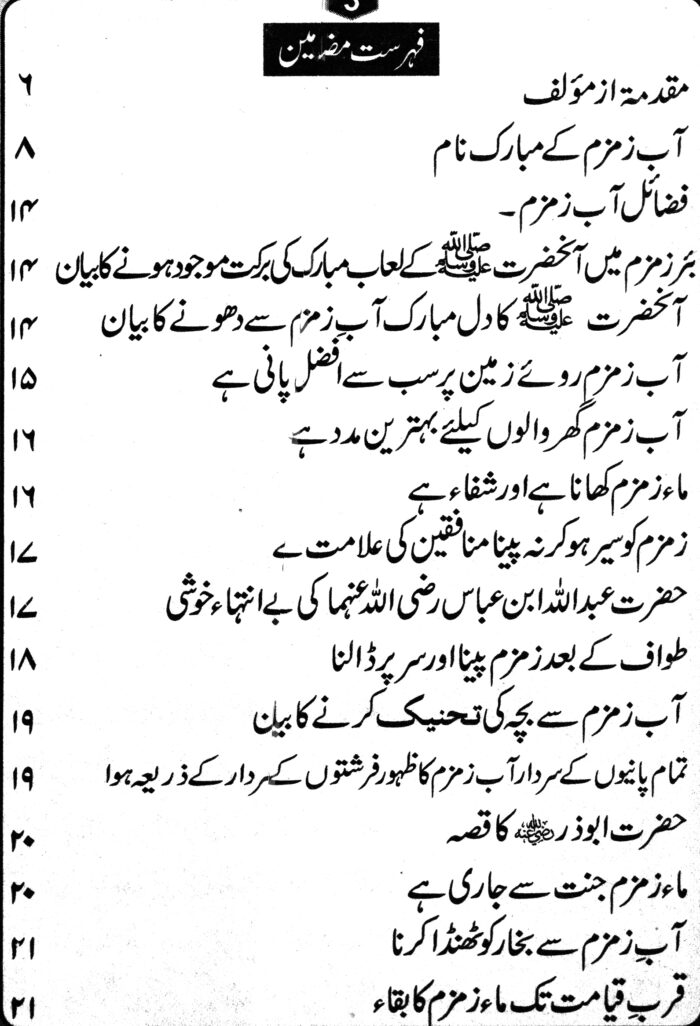 3
فہرست مضامین
مقدمۃ از مؤلف ۶
آب زمزم کے مبارک نام ۸
فضائل آب زمزم۔ ۱۴
بئر زمزم میں آنحضرت ﷺ کے لعاب مبارک کی برکت موجود ہونے کا بیان ۱۴
آنحضرت ﷺ کا دل مبارک آبِ زمزم سے دھونے کا بیان ۱۴
آب زمزم روئے زمین پر سب سے افضل پانی ہے ۱۵
آب زمزم گھر والوں کیلئے بہترین مدد ہے ۱۶
ماء زمزم کھانا ہے اور شفاء ہے ۱۶
زمزم کو سیر ہو کر نہ پینا منافقین کی علامت ہے ۱۷
حضرت عبداللہ ابن عباس رضی اللہ عنہما کی بے انتہاء خوشی ۱۷
طواف کے بعد زمزم پینا اور سر پر ڈالنا ۱۸
آب زمزم سے بچہ کی تحنیک کرنے کا بیان ۱۹
تمام پانیوں کے سردار آب زمزم کا ظہور فرشتوں کے سردار کے ذریعہ ہوا ۱۹
حضرت ابوذر رضی اللہ عنہ کا قصہ ۲۰
ماء زمزم جنت سے جاری ہے ۲۰
آبِ زمزم سے بخار کو ٹھنڈا کرنا ۲۱
قربِ قیامت تک ماء زمزم کا بقاء ۲۱